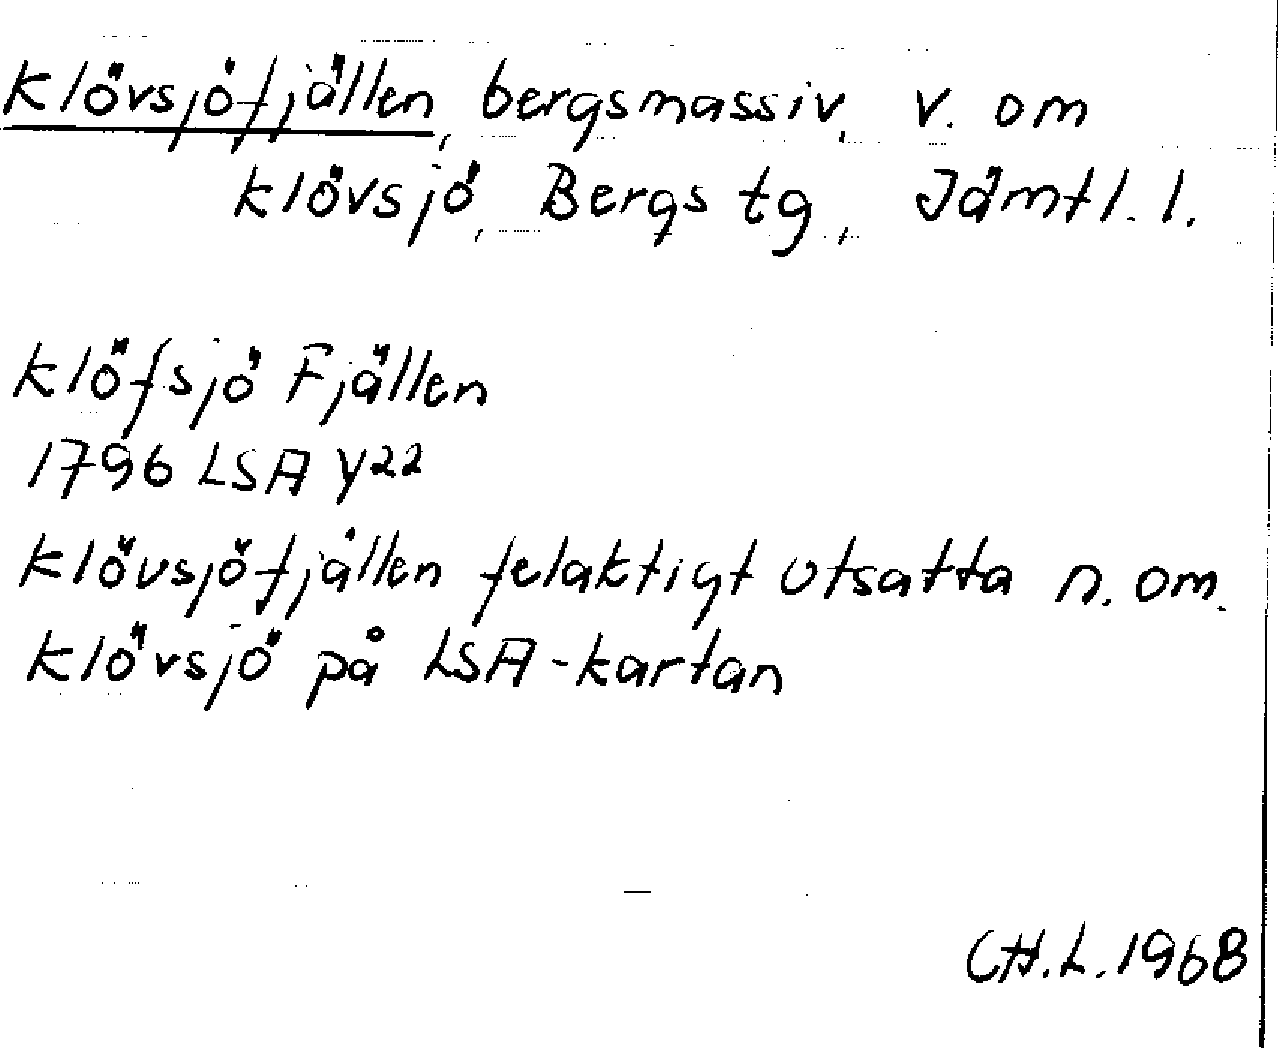 Klövsjöfjällen, bergsmassiv, v. om
Klövsjö, Bergs tg, Jämtl. l.
Klöfsjö Fjällen
1796 LSA Y22
Klövsjöfjällen felaktigt utsatta n. om
Klövsjö på LSA-kartan
CH.L. 1968